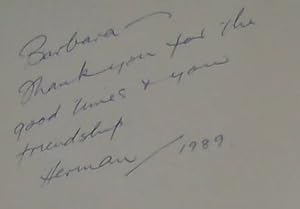 Barbara —
Thank you for the
good times & you
friendship
Herman / 1989.